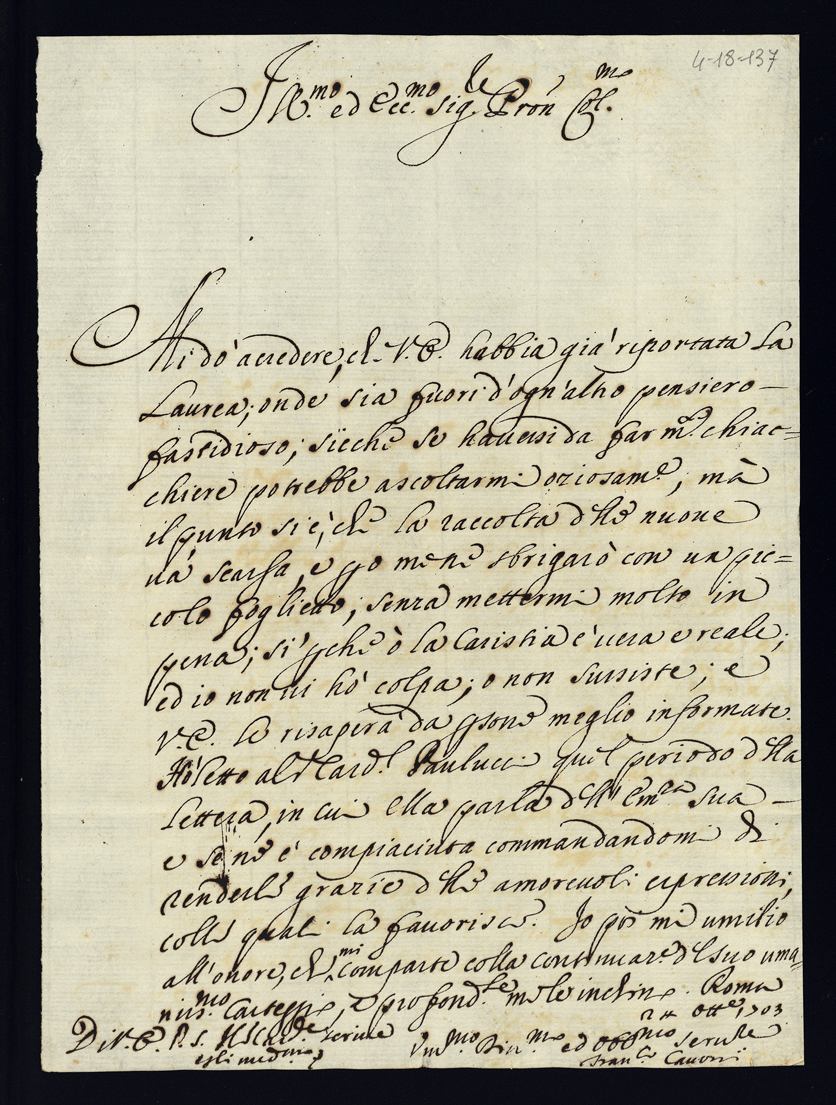 4-18-137
Ill.mo ed Ecc.mo Sig.re Pron Col.mo
Mi dò a credere, che V.E. habbia già riportata la
Laurea; onde sia fuori d'ogn'altro pensiero
fastidioso; sicchè se havessi da far m.e chiac=
chiere potrebbe ascoltarmi oziosam.e, mà
il punto si è, che la raccolta d'lle nuove
và scarsa, e me ne sbrigarò con un pic=
colo foglietto; senza mettermi molto in
pena; sì pche ò la Caristia è vera e reale;
ed io non vi hò colpa; o non sussiste; e
V.E. le risaperà da psone meglio informate.
Hò letto al S. Card.l Paulucci quel periodo d'lla
Lettera, in cui Ella parla d'll'Em.za sua
e se n'è compiaciuta commandandomi di
renderle grazie d'lle amorevoli espressioni,
colle quali la favorisce. Io poi mi umilio
all'onore, che mi comparte colla continuaz.e d'l suo uma=
niss.mo Carteggio, e profond.te me le inchino. Roma
24 Ott.e 1703
Di V.E.
Um.mo Div.mo ed Obb.mo Serv.re
Fran.co